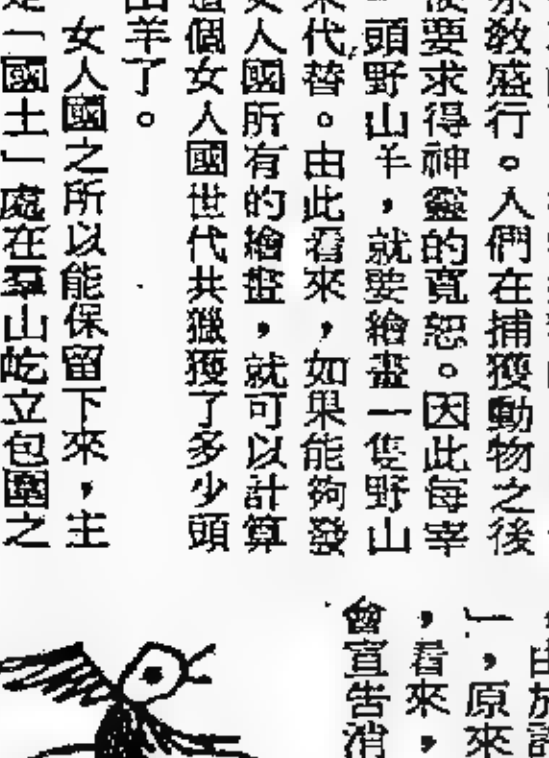 宗教盛行。人們在捕獲動物之後
要求得神靈的寬恕。因此每宰
頭野山羊，就要繪畫一隻野山
來代替。由此看來，如果能夠發
女人國所有的繪畫，就可以計算
這個女人國世代共獵獲了多少頭
山羊了。
女人國之所以能保留下來，主
是「國土」處在羣山屹立包圍之
由於
」，原來
，看來，
會宣告消